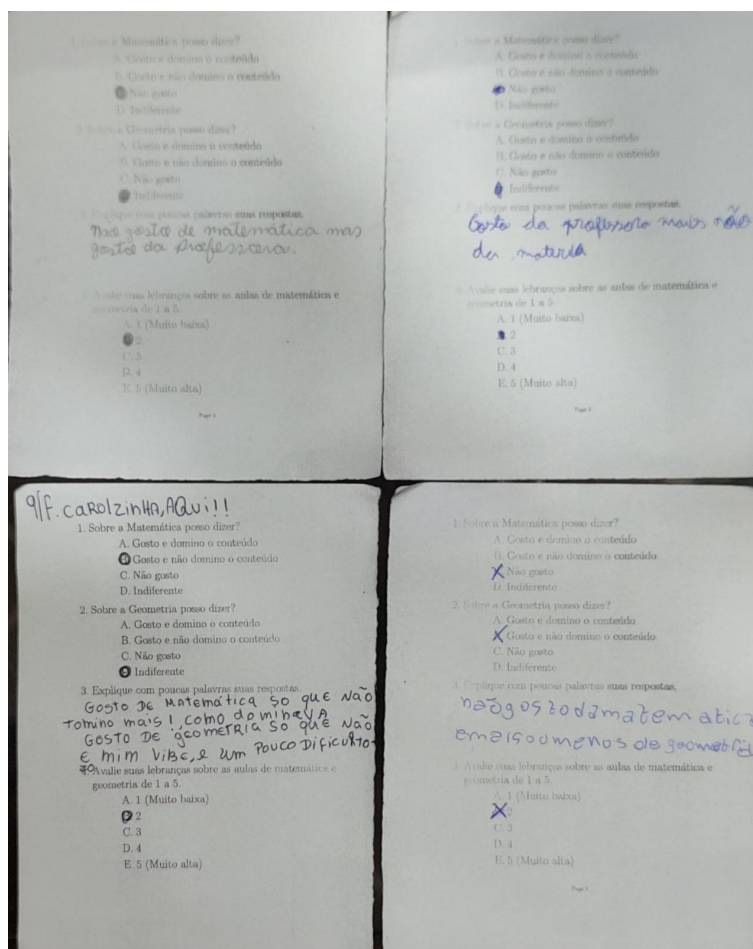 1. Sobre a Matemática posso dizer?
A. Gosto e domino o conteúdo
B. Gosto e não domino o conteúdo
Não gosto
D. Indiferente
2. Sobre a Geometria posso dizer?
A. Gosto e domino o conteúdo
B. Gosto e não domino o conteúdo
C. Não gosto
Indiferente
3. Explique com poucas palavras suas respostas.
Não gosto de matemática mas
gosto da professora.
4. Avalie suas lebranças sobre as aulas de matemática e
geometria de 1 a 5.
A. 1 (Muito baixa)
2
C. 3
D. 4
E. 5 (Muito alta)
1. Sobre a Matemática posso dizer?
A. Gosto e domino o conteúdo
B. Gosto e não domino o conteúdo
Não gosto
D. Indiferente
2. Sobre a Geometria posso dizer?
A. Gosto e domino o conteúdo
B. Gosto e não domino o conteúdo
C. Não gosto
Indiferente
Explique com poucas palavras suas respostas.
Gosto da professora mais não
da materia
Avalie suas lebranças sobre as aulas de matemática e
geometria de 1 a 5.
A. 1 (Muito baixa)
2
C. 3
D. 4
E. 5 (Muito alta)
9/F. CAROLZINHA, AQUI!!
1. Sobre a Matemática posso dizer?
A. Gosto e domino o conteúdo
Gosto e não domino o conteúdo
C. Não gosto
D. Indiferente
2. Sobre a Geometria posso dizer?
A. Gosto e domino o conteúdo
B. Gosto e não domino o conteúdo
C. Não gosto
Indiferente
3. Explique com poucas palavras suas respostas.
GOSTO DE MATEMÁTICA SO QUE NÃO
TOMINO MAIS! COMO DOMINAVA
GOSTO DE GEOMETRIA SO QUE NÃO
E MIM VIBE, E UM POUCO DIFICULTO
Avalie suas lebranças sobre as aulas de matemática e
geometria de 1 a 5.
A. 1 (Muito baixa)
2
C. 3
D. 4
E. 5 (Muito alta)
1. Sobre a Matemática posso dizer?
A. Gosto e domino o conteúdo
B. Gosto e não domino o conteúdo
Não gosto
D. Indiferente
2. Sobre a Geometria posso dizer?
A. Gosto e domino o conteúdo
Gosto e não domino o conteúdo
C. Não gosto
D. Indiferente
3. Explique com poucas palavras suas respostas.
não gosto da matematica
e mais ou menos de geometria
Avalie suas lebranças sobre as aulas de matemática e
geometria de 1 a 5.
A. 1 (Muito baixa)
2
C. 3
D. 4
E. 5 (Muito alta)